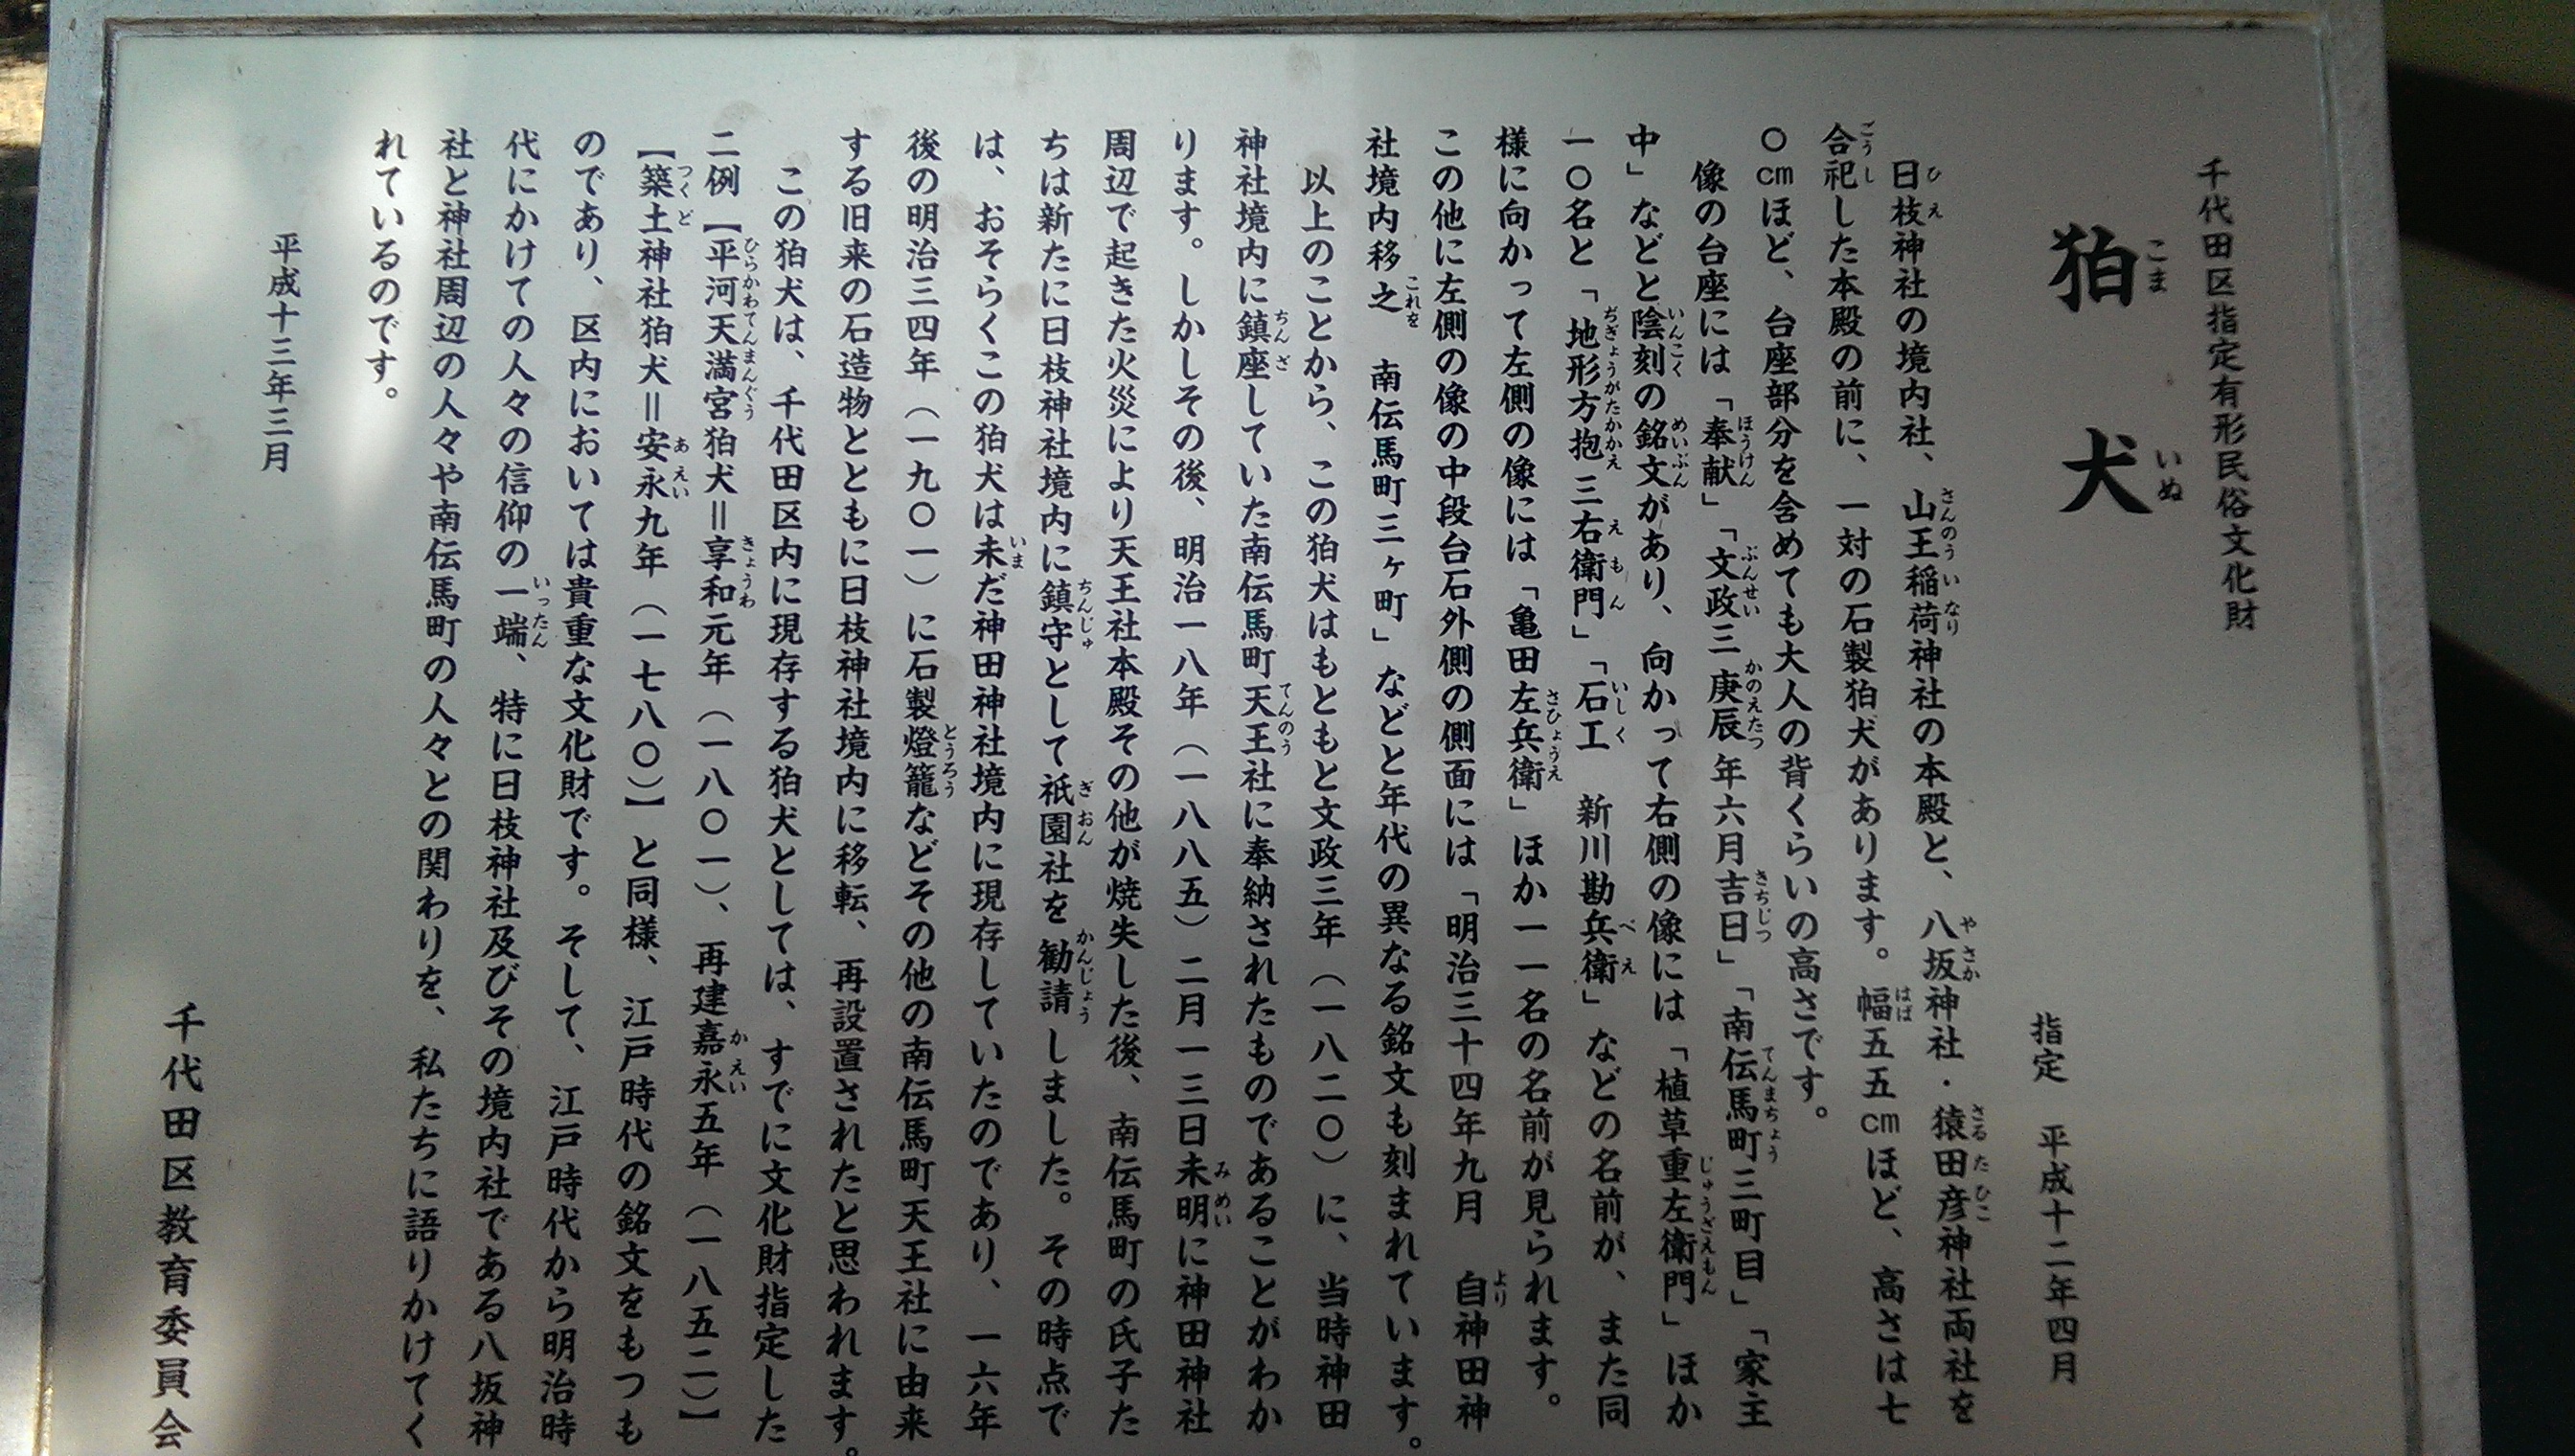 千代田区指定有形民俗文化財
狛犬
こまいぬ
指定 平成十二年四月
日枝神社の境内社、山王稲荷神社の本殿と、八坂神社・猿田彦神社両社を
ひえ さんのういなり やさか さるたひこ
合祀した本殿の前に、一対の石製狛犬があります。幅五五cmほど、高さは七
ごうし はば
〇cmほど、台座部分を含めても大人の背くらいの高さです。
像の台座には「奉献」「文政三庚辰年六月吉日」「南伝馬町三町目」「家主
ほうけん ぶんせい かのえたつ きちじつ てんまちょう
中」などと陰刻の銘文があり、向かって右側の像には「植草重左衛門」ほか
いんこく めいぶん じゅうざえもん
一〇名と「地形方抱三右衛門」「石工 新川勘兵衛」などの名前が、また同
ぢぎょうがたかかえ えもん いしく べえ
様に向かって左側の像には「亀田左兵衛」ほか一一名の名前が見られます。
さひょうえ
この他に左側の像の中段台石外側の側面には「明治三十四年九月 自神田神
より
社境内移之 南伝馬町三ヶ町」などと年代の異なる銘文も刻まれています。
これを
以上のことから、この狛犬はもともと文政三年（一八二〇）に、当時神田
神社境内に鎮座していた南伝馬町天王社に奉納されたものであることがわか
ちんざ てんのう
ります。しかしその後、明治一八年（一八八五）二月一三日未明に神田神社
みめい
周辺で起きた火災により天王社本殿その他が焼失した後、南伝馬町の氏子た
ちは新たに日枝神社境内に鎮守として祇園社を勧請しました。その時点で
ちんじゅ ぎおん かんじょう
は、おそらくこの狛犬は未だ神田神社境内に現存していたのであり、一六年
いま
後の明治三四年（一九〇一）に石製燈籠などその他の南伝馬町天王社に由来
とうろう
する旧来の石造物とともに日枝神社境内に移転、再設置されたと思われます。
この狛犬は、千代田区内に現存する狛犬としては、すでに文化財指定した
二例【平河天満宮狛犬＝享和元年（一八〇一）、再建嘉永五年（一八五二）】
ひらかわてんまんぐう きょうわ かえい
【築土神社狛犬＝安永九年（一七八〇）】と同様、江戸時代の銘文をもつも
つくど あえい
のであり、区内においては貴重な文化財です。そして、江戸時代から明治時
代にかけての人々の信仰の一端、特に日枝神社及びその境内社である八坂神
いったん
社と神社周辺の人々や南伝馬町の人々との関わりを、私たちに語りかけてく
れているのです。
平成十三年三月
千代田区教育委員会